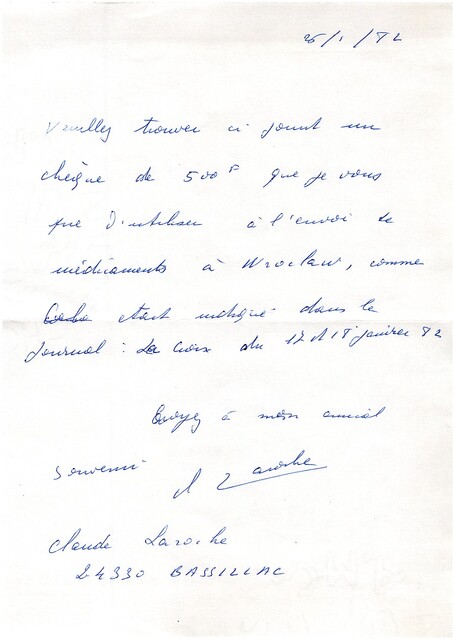 26/1/82
Veuillez trouver ci joint un
chèque de 500F que je vous
prie D'utiliser à l'envoi de
médicaments à Wroclaw, comme
était indiqué dans le
Journal : La Croix du 17 et 18 janvier 82
Croyez à mon amical
souvenir
Claude Laroche
24330 BASSILLAC